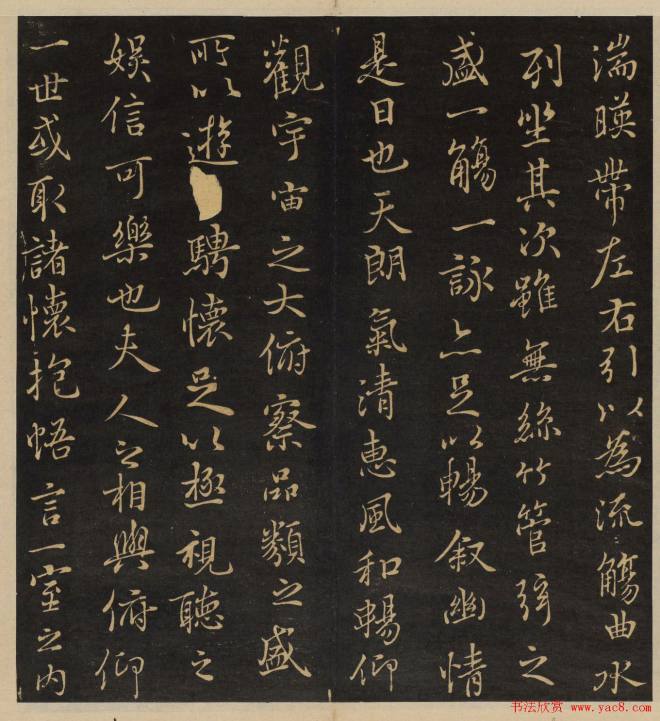 湍暎帶左右引以為流觴曲水
列坐其次雖無絲竹管弦之
盛一觴一詠亦足以暢叙幽情
是日也天朗氣清惠風和暢仰
觀宇宙之大俯察品類之盛
所以遊騁懷足以極視聽之
娛信可樂也夫人之相與俯仰
一世或取諸懷抱悟言一室之内
书法欣赏 www.yac8.com